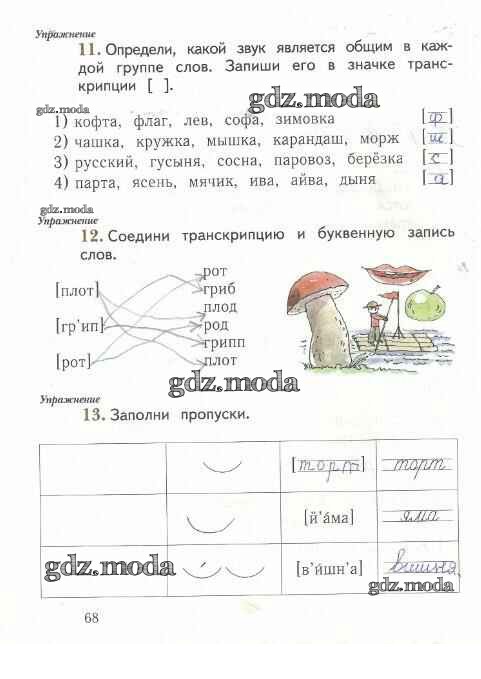 Упражнение
11. Определи, какой звук является общим в каж-
дой группе слов. Запиши его в значке транс-
крипции [ ].
gdz.moda
gdz.moda
1) кофта, флаг, лев, софа, зимовка [ф]
2) чашка, кружка, мышка, карандаш, морж [ш]
3) русский, гусыня, сосна, паровоз, берёзка [с]
4) парта, ясень, мячик, ива, айва, дыня [а]
gdz.moda
Упражнение
12. Соедини транскрипцию и буквенную запись
слов.
рот
[плот] гриб
плод
[гр'ип] род
грипп
[рот] плот
gdz.moda
Упражнение
13. Заполни пропуски.
[торт] торт
[й'а́ма] яма
[в'и́шн'а] вишня
gdz.moda
gdz.moda
68